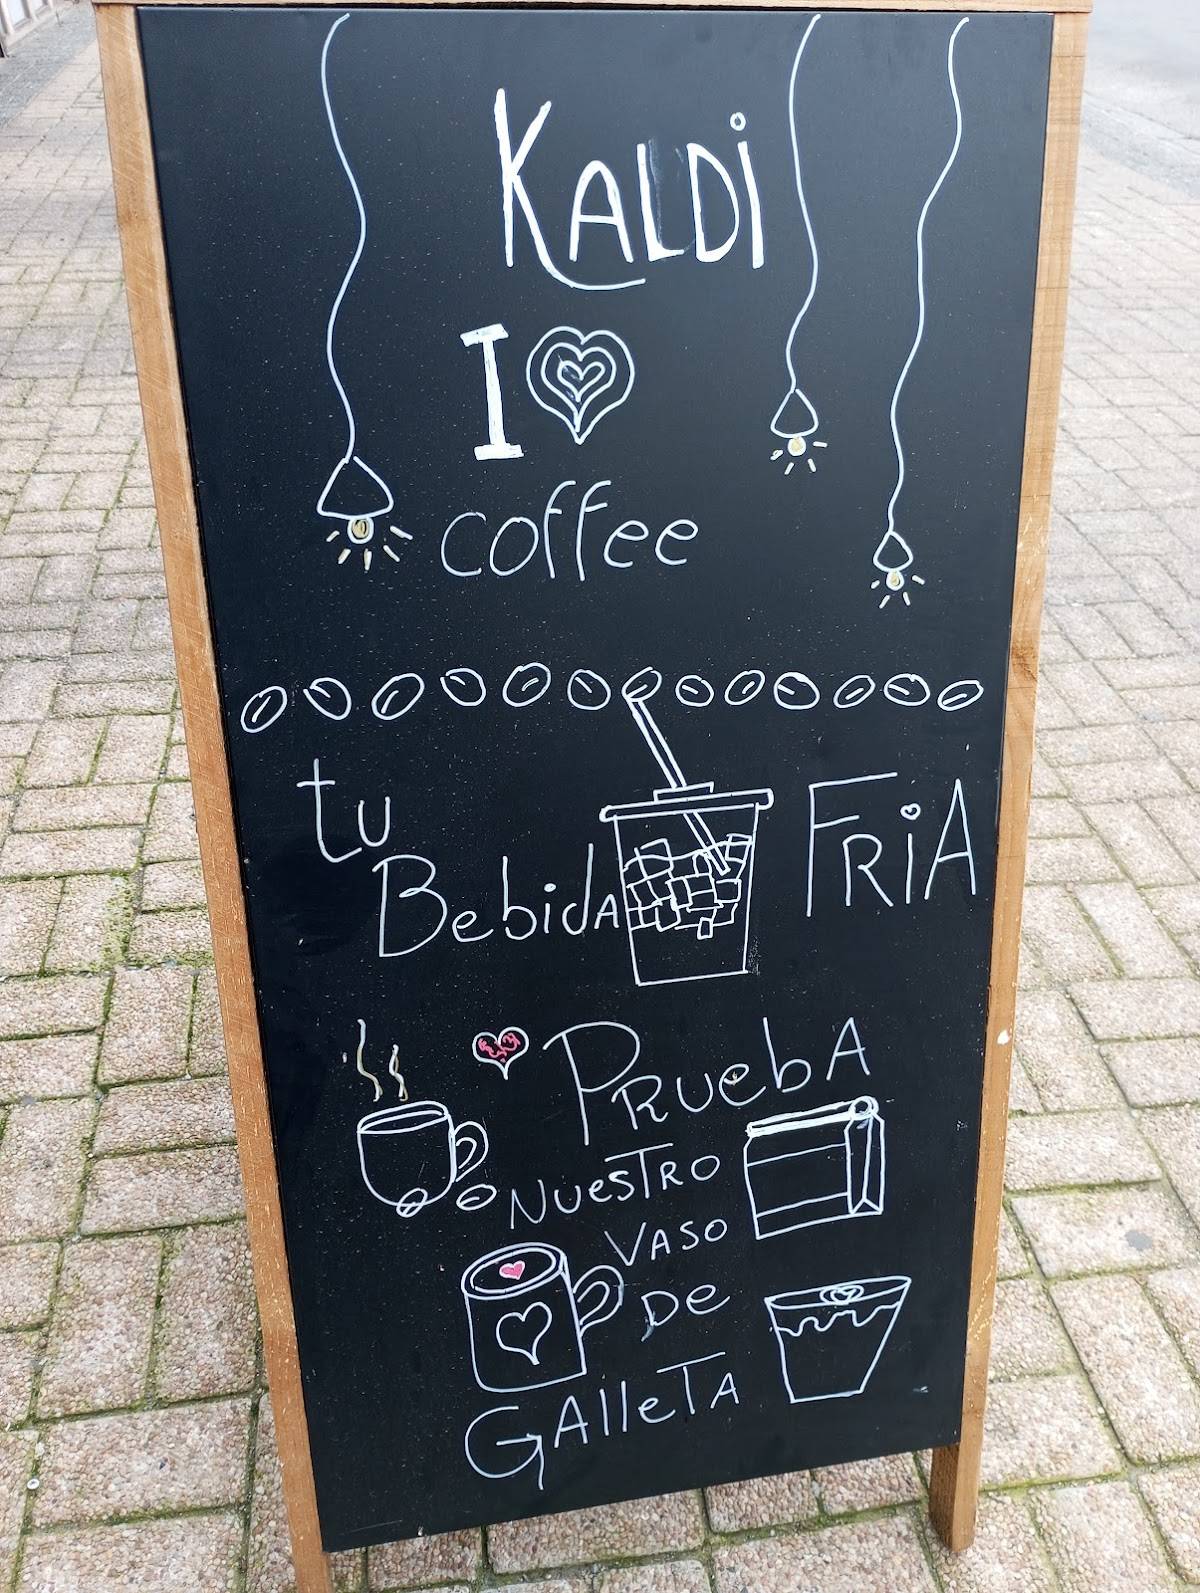 KALDi
I
coffee
tu
BebidA FRiA
PRuebA
NuesTRO
VASO
De
GAlleTA